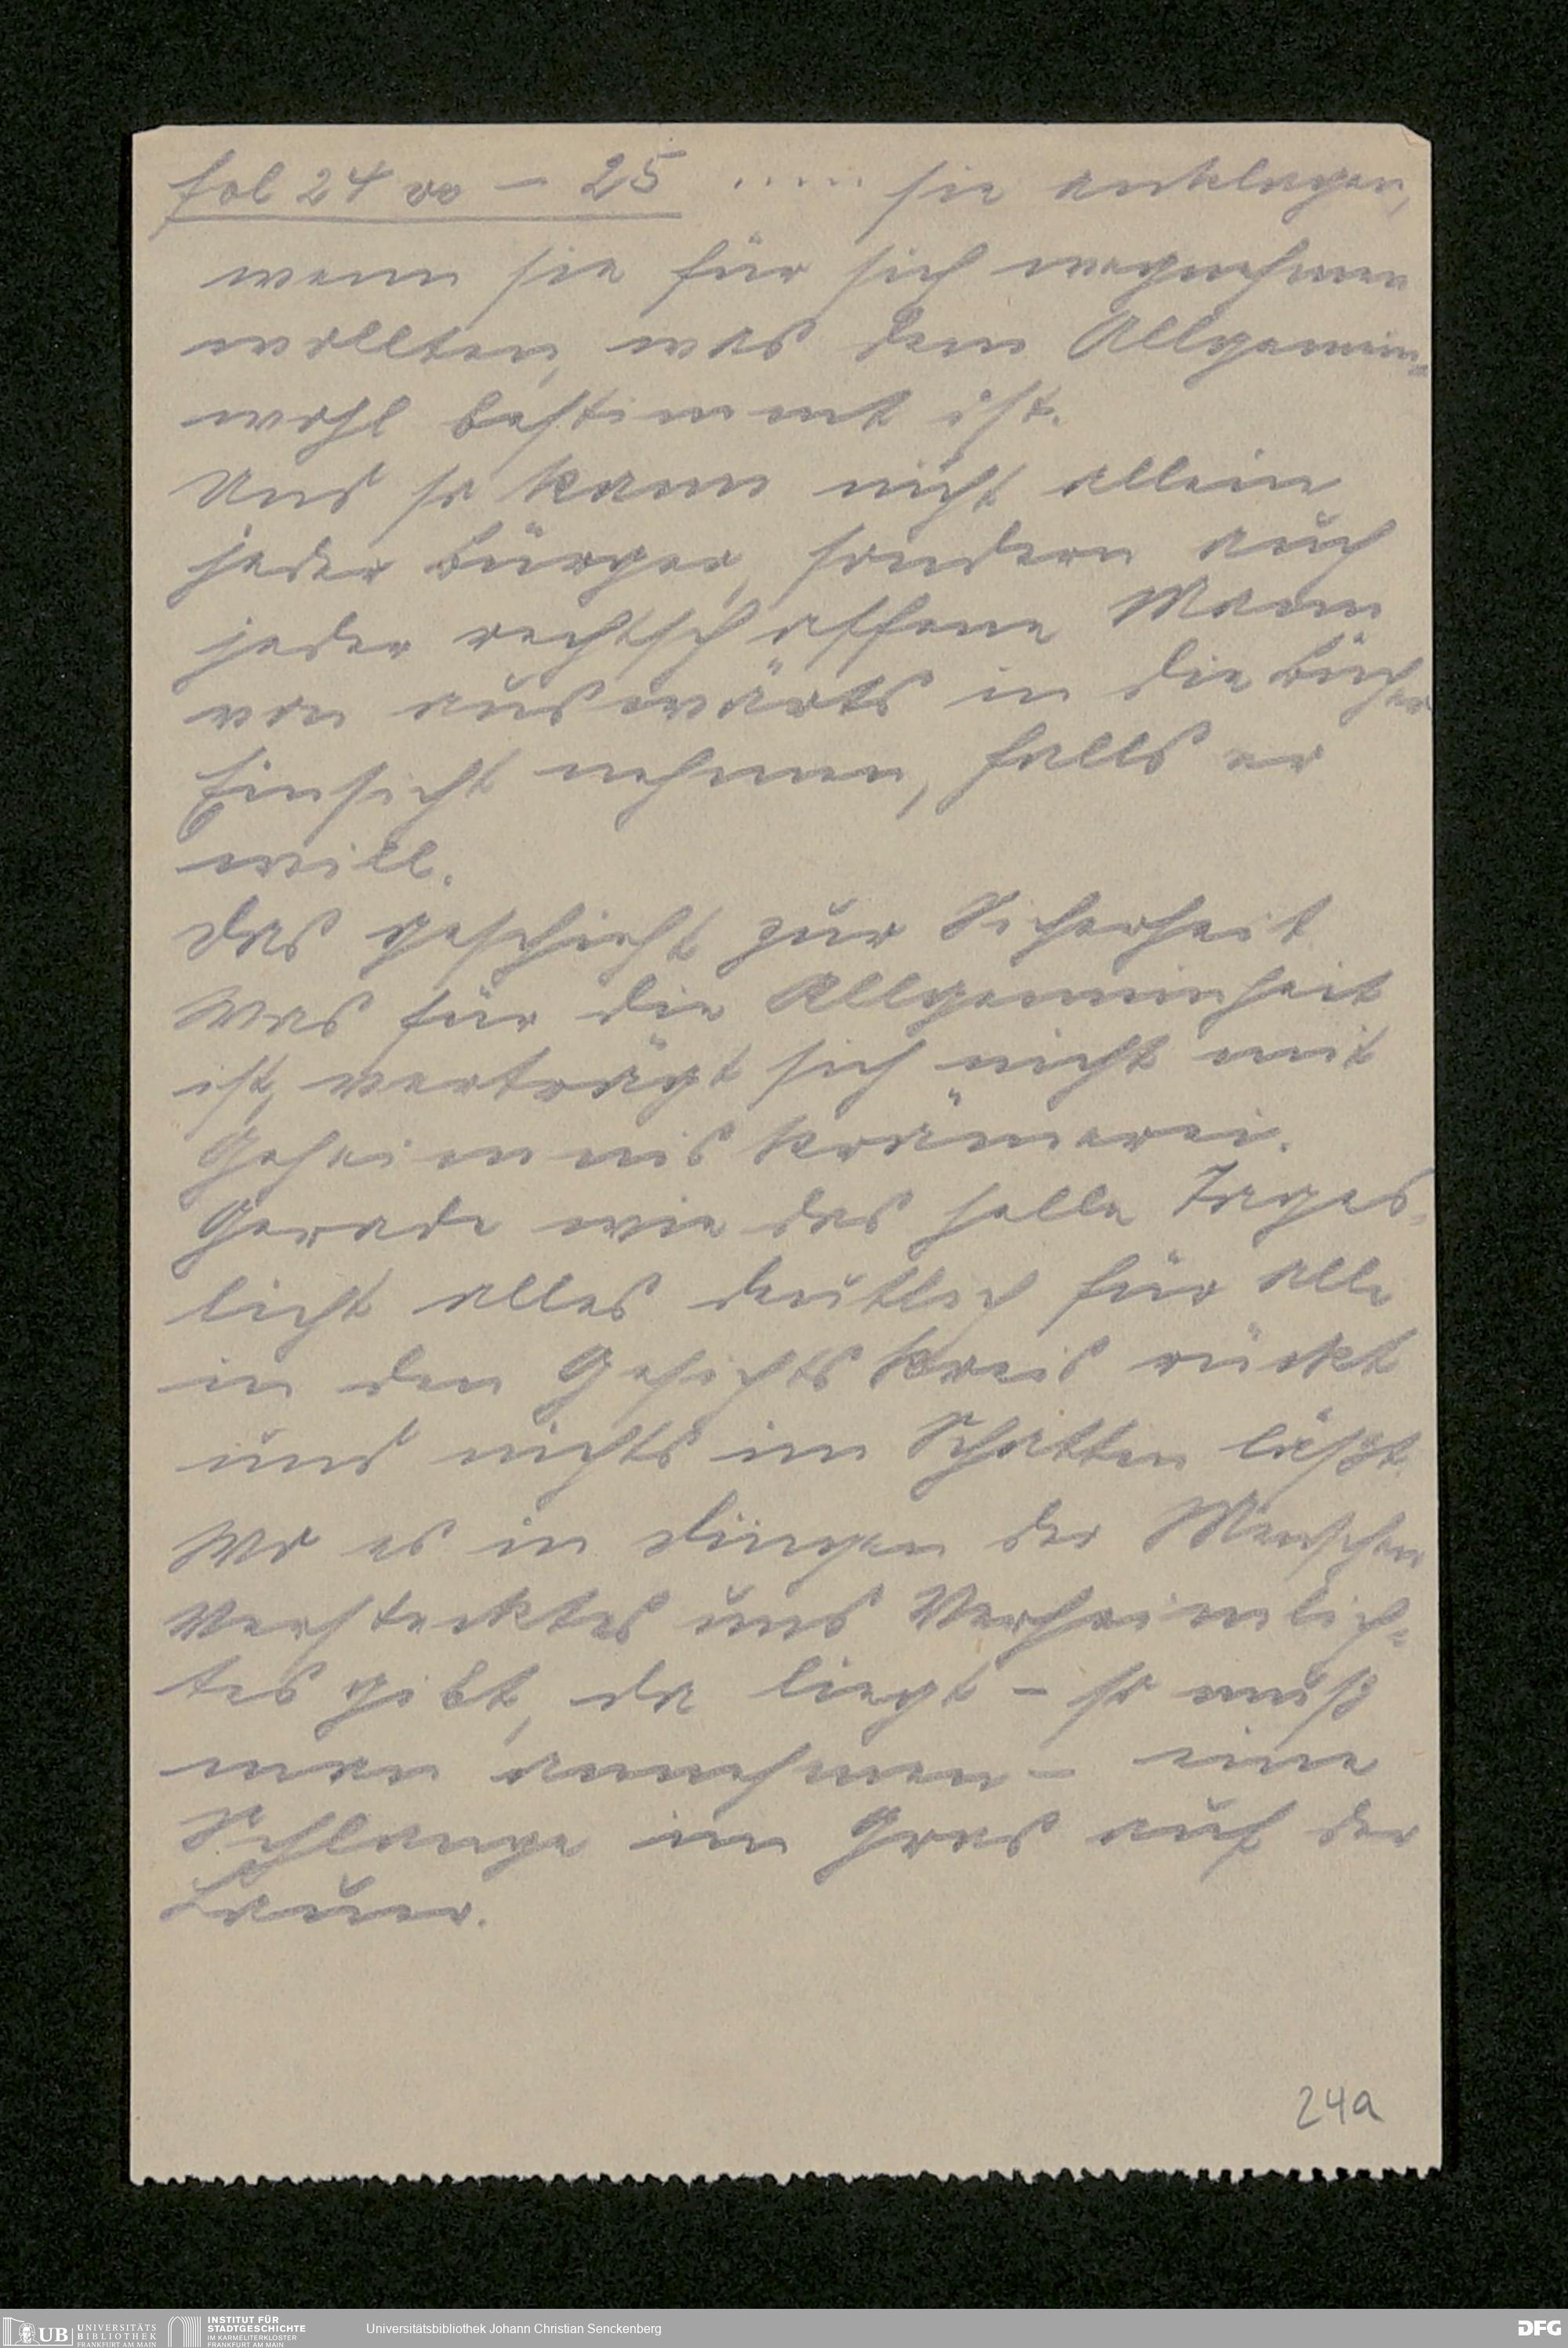 fol 24 vo – 25 ..... sie anklagen,
wenn sie für sich wegnehmen
wollten, was dem Allgemein=
wohl bestimmt ist.
Und so kann nicht allein
jeder Bürger, sondern auch
jeder rechtschaffene Mann
von auswärts in die Bücher
Einsicht nehmen, falls er
will.
Das geschieht zur Sicherheit
Was für die Allgemeinheit
ist, verträgt sich nicht mit
Geheimniskrämerei.
Gerade wie das helle Tages=
licht alles deutlich für alle
in den Gesichtskreis rückt
und nichts im Schatten läßt.
Wo es in Dingen der Menschen
Verstecktes und Verheimlich=
tes gibt, da liegt – so muß
man annehmen – eine
Schlange im Gras auf der
Lauer.
24a
UB UNIVERSITÄTS BIBLIOTHEK FRANKFURT AM MAIN
INSTITUT FÜR STADTGESCHICHTE IM KARMELITERKLOSTER FRANKFURT AM MAIN
Universitätsbibliothek Johann Christian Senckenberg
DFG